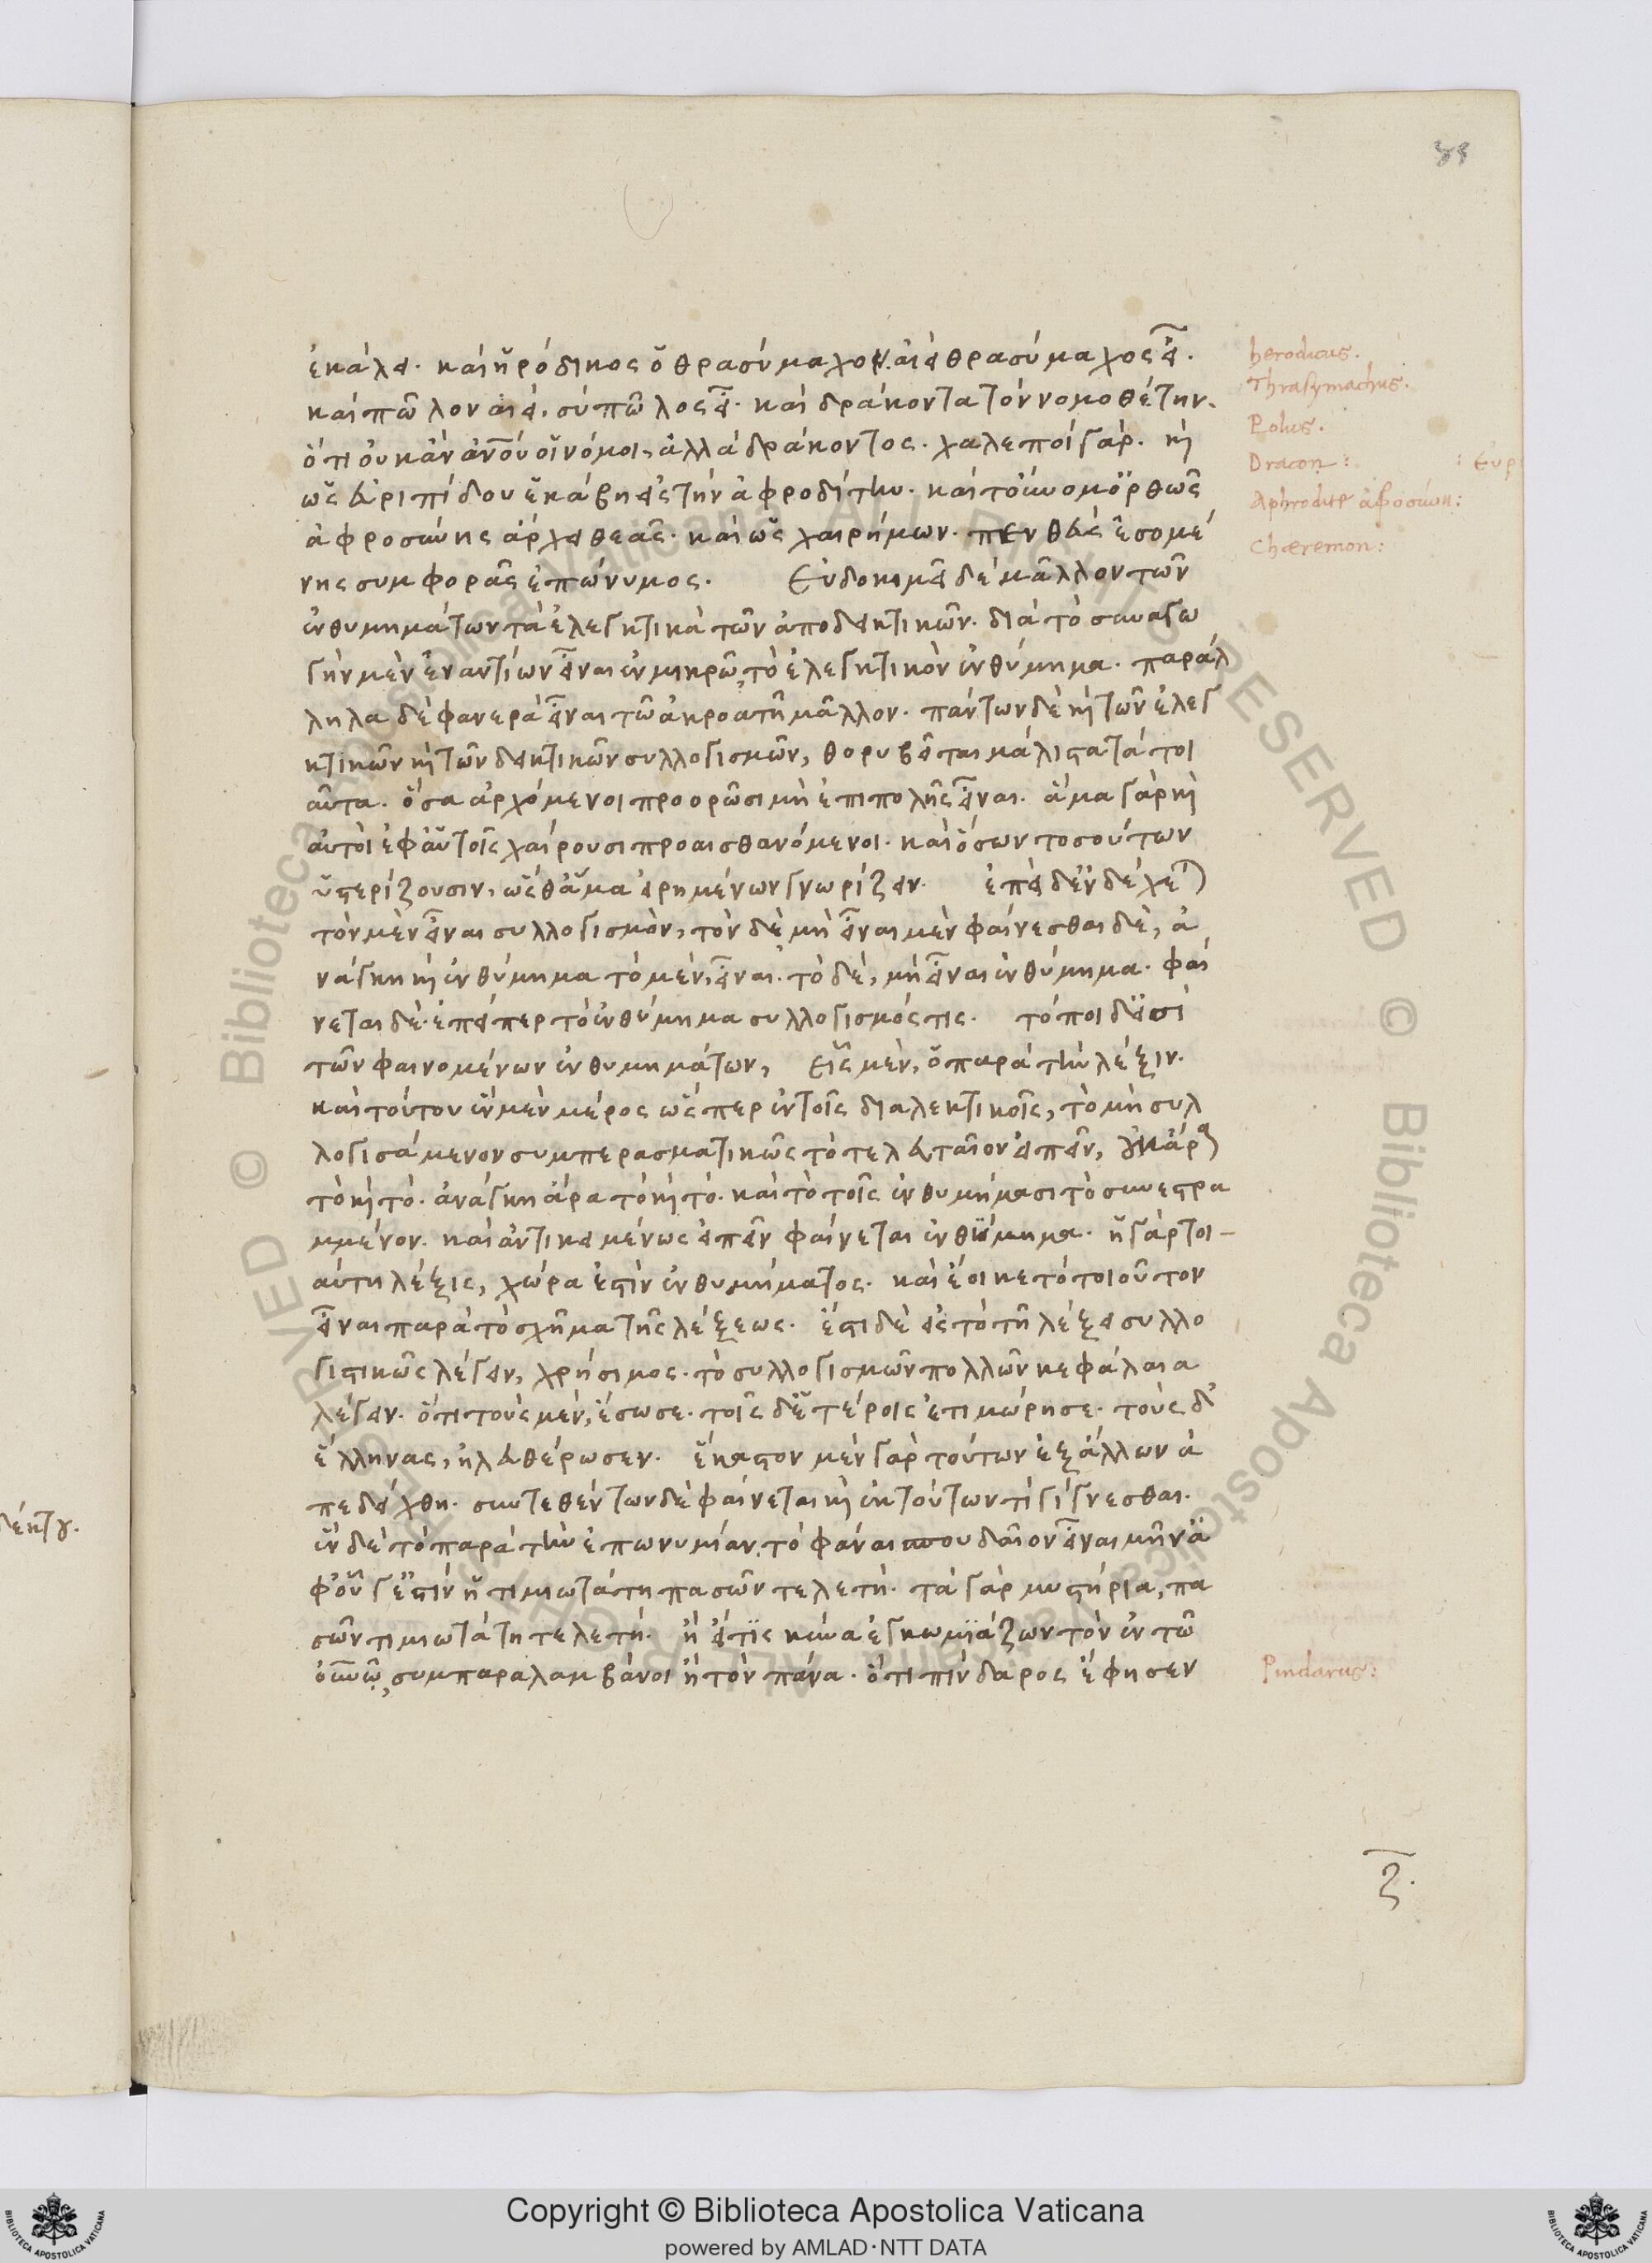 ἐκάλει. καὶ ἡρόδικος ὁ θρασύμαχον. αἰεὶ θρασύμαχος εἶ.
καὶ πῶλον αἰεὶ, σὺ πῶλος εἶ. καὶ δράκοντα τὸν νομοθέτην.
ὅτι οὐκ ἂν ἀνου οἱ νόμοι, ἀλλὰ δράκοντος. χαλεποὶ γάρ. καὶ
ὡς εὐριπίδου ἑκάβη εἰς τὴν ἀφροδίτην. καὶ τοὔνομ' ὀρθῶς
ἀφροσύνης ἄρχει θεᾶς. καὶ ὡς χαιρήμων. πενθεὺς ἐσομέ
νης συμφορᾶς ἐπώνυμος. Εὐδοκιμεῖ δὲ μᾶλλον τῶν
ἐνθυμημάτων τὰ ἐλεγκτικὰ τῶν ἀποδεικτικῶν. διὰ τὸ συναγω
γὴν μὲν ἐναντίων εἶναι ἐν μικρῷ τὸ ἐλεγκτικὸν ἐνθύμημα. παράλ
ληλα δὲ φανερὰ εἶναι τῶ ἀκροατῆ μᾶλλον. πάντων δὲ καὶ τῶν ἐλεγ
κτικῶν καὶ τῶν δεικτικῶν συλλογισμῶν, θορυβεῖται μάλιστα τὰ τοι
αῦτα. ὅσα ἀρχόμενοι προορῶσι μὴ ἐπιπολῆς εἶναι. ἅμα γὰρ καὶ
αὐτοὶ ἐφ' αὑτοῖς χαίρουσι προαισθανόμενοι. καὶ ὅσων τοσούτων
ὑστερίζουσιν, ὥσθ' ἅμα εἰρημένων γνωρίζειν. ἐπεὶ δ' ἐνδέχεται
τὸν μὲν εἶναι συλλογισμὸν, τὸν δὲ μὴ εἶναι μὲν φαίνεσθαι δὲ, ἀ
νάγκη καὶ ἐνθύμημα τὸ μὲν, εἶναι. τὸ δὲ, μὴ εἶναι ἐνθύμημα. φαί
νεται δὲ. ἐπείπερ τὸ ἐνθύμημα συλλογισμός τις. τόποι δ' εἰσὶ
τῶν φαινομένων ἐνθυμημάτων, εἷς μὲν, ὁ παρὰ τὴν λέξιν.
καὶ τούτου ἓν μὲν μέρος ὥσπερ ἐν τοῖς διαλεκτικοῖς, τὸ μὴ συλ
λογισάμενον συμπερασματικῶς τὸ τελευταῖον εἰπεῖν, οὐκ ἄρα
τὸ καὶ τό. ἀνάγκη ἄρα τὸ καὶ τό. καὶ τὸ τοῖς ἐνθυμήμασι τὸ συνεστρα
μμένον. καὶ ἀντικειμένως εἰπεῖν φαίνεται ἐνθύμημα. ἡ γὰρ τοι-
αύτη λέξις, χώρα ἐστὶν ἐνθυμήματος. καὶ ἔοικε τὸ τοιοῦτον
εἶναι παρὰ τὸ σχῆμα τῆς λέξεως. ἔστι δὲ εἰς τὸ τῆ λέξει συλλο
γιστικῶς λέγειν, χρήσιμος. τὸ συλλογισμῶν πολλῶν κεφάλαια
λέγειν. ὅτι τοὺς μὲν, ἔσωσε. τοῖς δ' ἑτέροις ἐτιμώρησε. τοὺς δ'
ἕλληνας, ἠλευθέρωσεν. ἕκαστον μὲν γὰρ τούτων ἐξ ἄλλων ἀ
πεδείχθη. συντεθέντων δὲ φαίνεται καὶ ἐκ τούτων τὶ γίγνεσθαι.
ἓν δὲ τὸ παρὰ τὴν ἐπωνυμίαν. τὸ φάναι σπουδαῖον εἶναι μῦν ἀ
φ' οὗ γ' ἐστὶν ἡ τιμιωτάτη πασῶν τελετή. τὰ γὰρ μυστήρια, πα
σῶν τιμιωτάτη τελετή. ἢ εἴ τις κύνα ἐγκωμιάζων τὸν ἐν τῶ
οὐνῷ συμπαραλαμβάνοι ἢ τὸν πάνα. ὅτι πίνδαρος ἔφησεν
herodicus.
Thrasymachus.
Polus.
Dracon:
Aphrodite
Chæremon:
Pindarus:
Copyright © Biblioteca Apostolica Vaticana
powered by AMLAD·NTT DATA